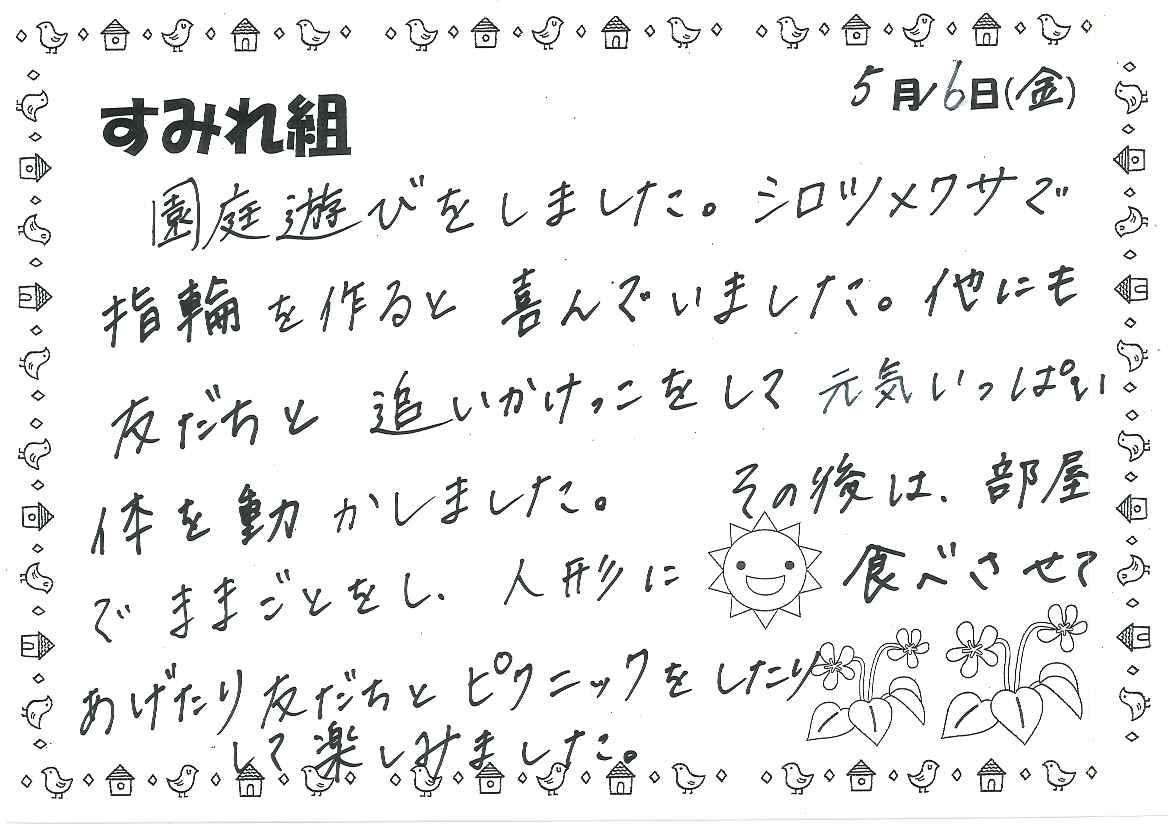 5月6日(金)
すみれ組
園庭遊びをしました。シロツメクサで
指輪を作ると喜んでいました。他にも
友だちと追いかけっこをして元気いっぱい
体を動かしました。その後は、部屋
でままごとをし、人形に食べさせて
あげたり友だちとピクニックをしたり
して楽しみました。